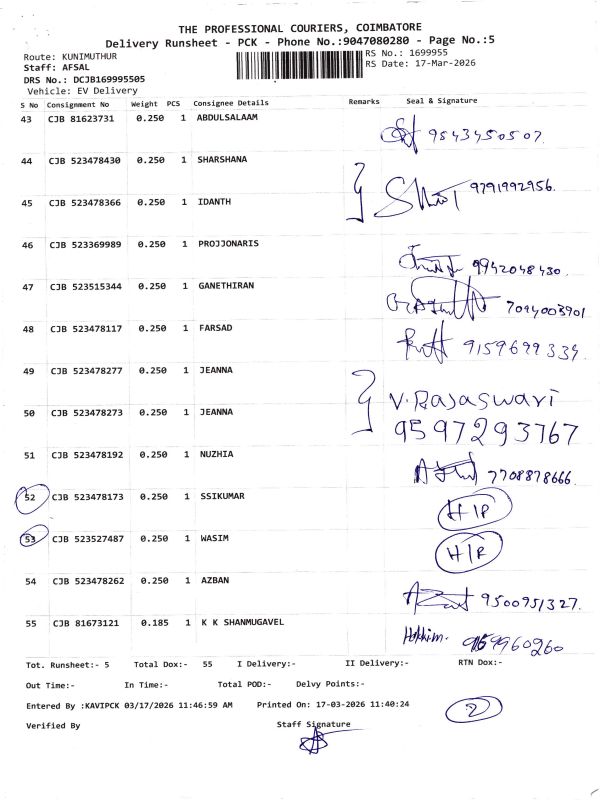 THE PROFESSIONAL COURIERS, COIMBATORE
Delivery Runsheet - PCK - Phone No.:9047080280 - Page No.:5
Route: KUNIMUTHUR RS No.: 1699955
Staff: AFSAL RS Date: 17-Mar-2026
DRS No.: DCJB169995505
Vehicle: EV Delivery
S No Consignment No Weight PCS Consignee Details Remarks Seal & Signature
43 CJB 81623731 0.250 1 ABDULSALAAM
9543450507.
44 CJB 523478430 0.250 1 SHARSHANA
9791992956.
45 CJB 523478366 0.250 1 IDANTH
46 CJB 523369989 0.250 1 PROJJONARIS
9942048430.
47 CJB 523515344 0.250 1 GANETHIRAN
7094003901
48 CJB 523478117 0.250 1 FARSAD
9159699339.
49 CJB 523478277 0.250 1 JEANNA
V. Rajaswari
50 CJB 523478273 0.250 1 JEANNA
9597293767
51 CJB 523478192 0.250 1 NUZHIA
7708878666.
52 CJB 523478173 0.250 1 SSIKUMAR
53 CJB 523527487 0.250 1 WASIM
54 CJB 523478262 0.250 1 AZBAN
9500951327.
55 CJB 81673121 0.185 1 K K SHANMUGAVEL
Tot. Runsheet:- 5 Total Dox:- 55 I Delivery:- II Delivery:- RTN Dox:-
Out Time:- In Time:- Total POD:- Delvy Points:-
Entered By :KAVIPCK 03/17/2026 11:46:59 AM Printed On: 17-03-2026 11:40:24
2
Verified By Staff Signature